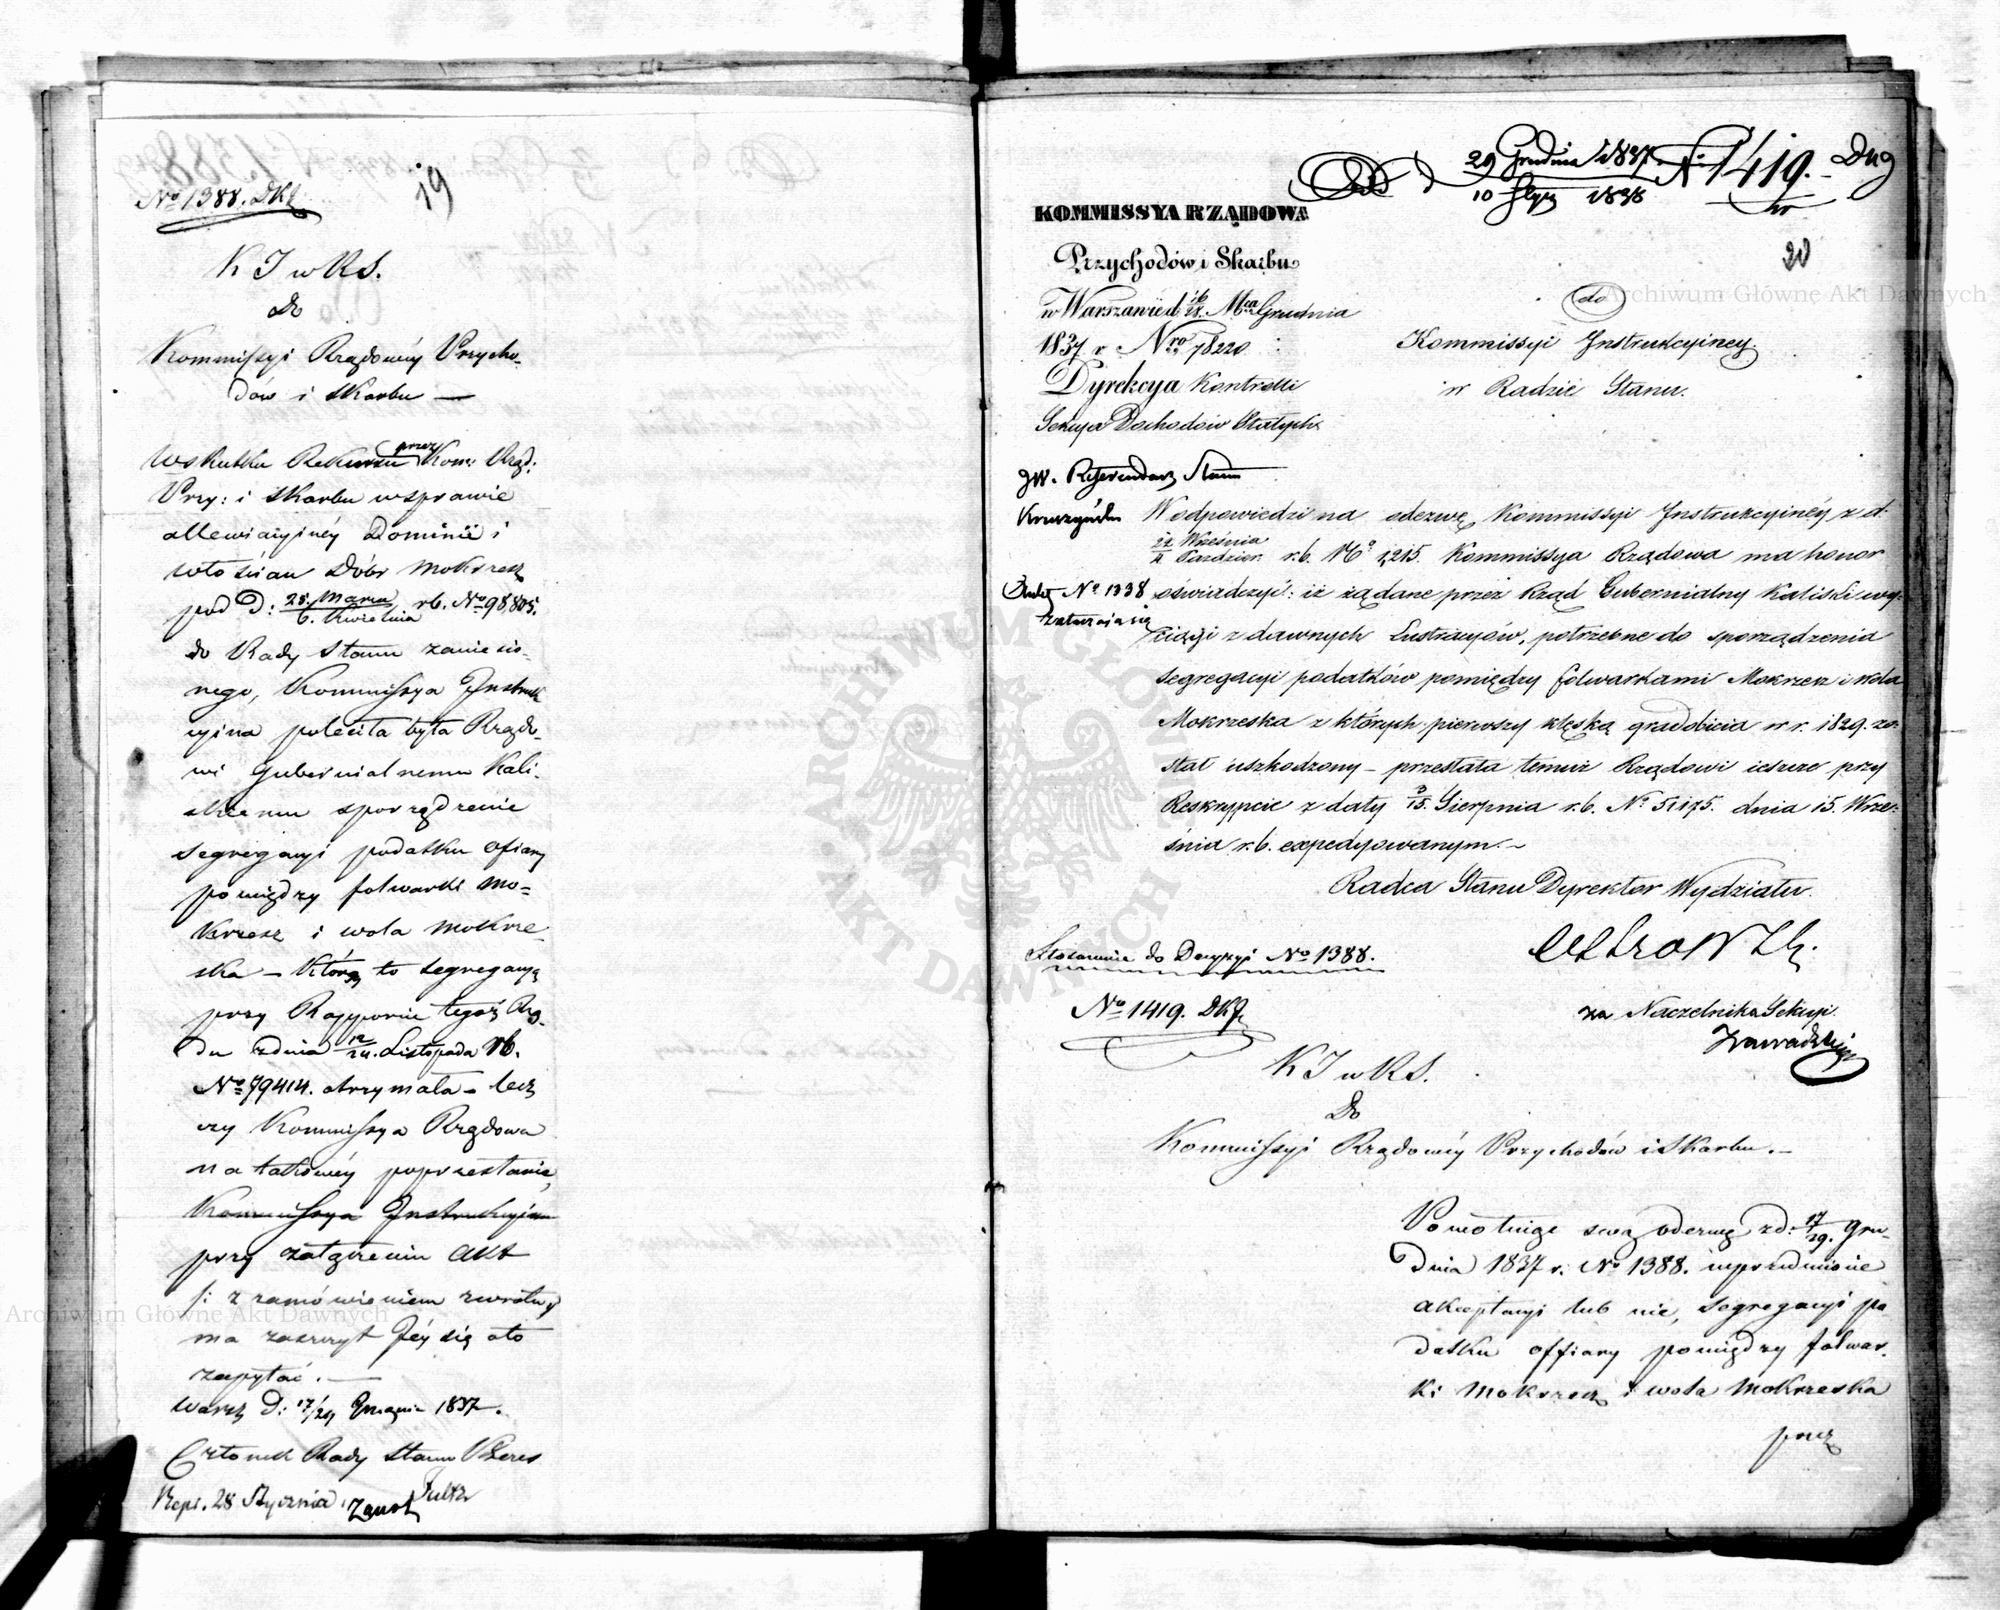 No 1388. DKJ
19
K J w R S.
do
Kommissyi Rządowéy Przycho-
dów i Skarbu —
Wskutku Rekursu przez Kom: Rząd:
Przy: i Skarbu wsprawie
allewiacyinéy Dominii i
Włościan Dóbr Mokrzesz
pod D: 25. Marca / 6. Kwietnia rb. No 98,805.
do Rady Stanu zaniesio-
nego, Kommissya Instruk
cyina poleciła była Rządo-
wi Gubernialnemu Kali-
skiemu sporządzenie
segregacyi podatku ofiary
pomiędzy folwarki Mo-
krzesz i Wola Mokrze-
ska – którą to segregacyą
przy Rapporcie tegoż Rzą-
du zdnia 12/24. Listopada rb.
No 79414. otrzymała – lecz
czy Kommissya Rządowa
na takowéy poprzestanie,
Kommissya Instrukcyina
przy załączeniu Akt
/: z zamówieniem zwrotu
ma zaszczyt Jéy się oto
zapytać. —
Warsz D: 17/29 Grudnia 1837.
Członek Rady Stanu Prezes
Exp. 28 Stycznia.
29 Grudnia 1837 / 10 Stycz 1838 No 1419. —
20
KOMMISSYA RZĄDOWA
Przychodów i Skarbu
w Warszawie d 16/28. Mca Grudnia
1837 r Nro 78220
Dyrekcya Kontrolli
Sekcya Dochodów Stałych
do
Kommissyi Instrukcyiney.
w Radzie Stanu.
JW. Referendarz Stanu
Kruszyński
W odpowiedzi na odezwę Kommissyi Instrukcyinéy z d.
22 Września / 4 Paździer. r.b. No 1215. Kommissya Rządowa ma honor
oświadczyć: iż żądane przez Rząd Gubernialny Kaliski wy-
ciągi z dawnych Lustracyów, potrzebne do sporządzenia
segregacyi podatków pomiędzy folwarkami Mokrzesz i Wola
Mokrzeska z których pierwszy klęską gradobicia w r. 1829. zo-
stał uszkodzony – przesłała temuż Rządowi ieszcze przy
Reskrypcie z daty 3/15. Sierpnia r.b. No 51175. dnia 15. Wrze-
śnia r.b. expedyowanym. –
No 1338
załącza się
Radca Stanu Dyrektor Wydziału.
Stosownie do Decyzyi No 1388.
za Naczelnika Sekcyi
Zawadzki
No 1419. DKJ.
K J w R S.
do
Kommissyi Rządowéy Przychodów i Skarbu. –
Ponowiając swą odezwę z d: 17/29. Gru-
dnia 1837 r. No 1388. wprzedmiocie
akceptacyi lub nie, segregacyi po
datku offiary pomiędzy folwar.
ki Mokrzesz i Wola Mokrzeska
przez
Archiwum Główne Akt Dawnych
Archiwum Główne Akt Dawnych
ARCHIWUM GŁÓWNE AKT DAWNYCH